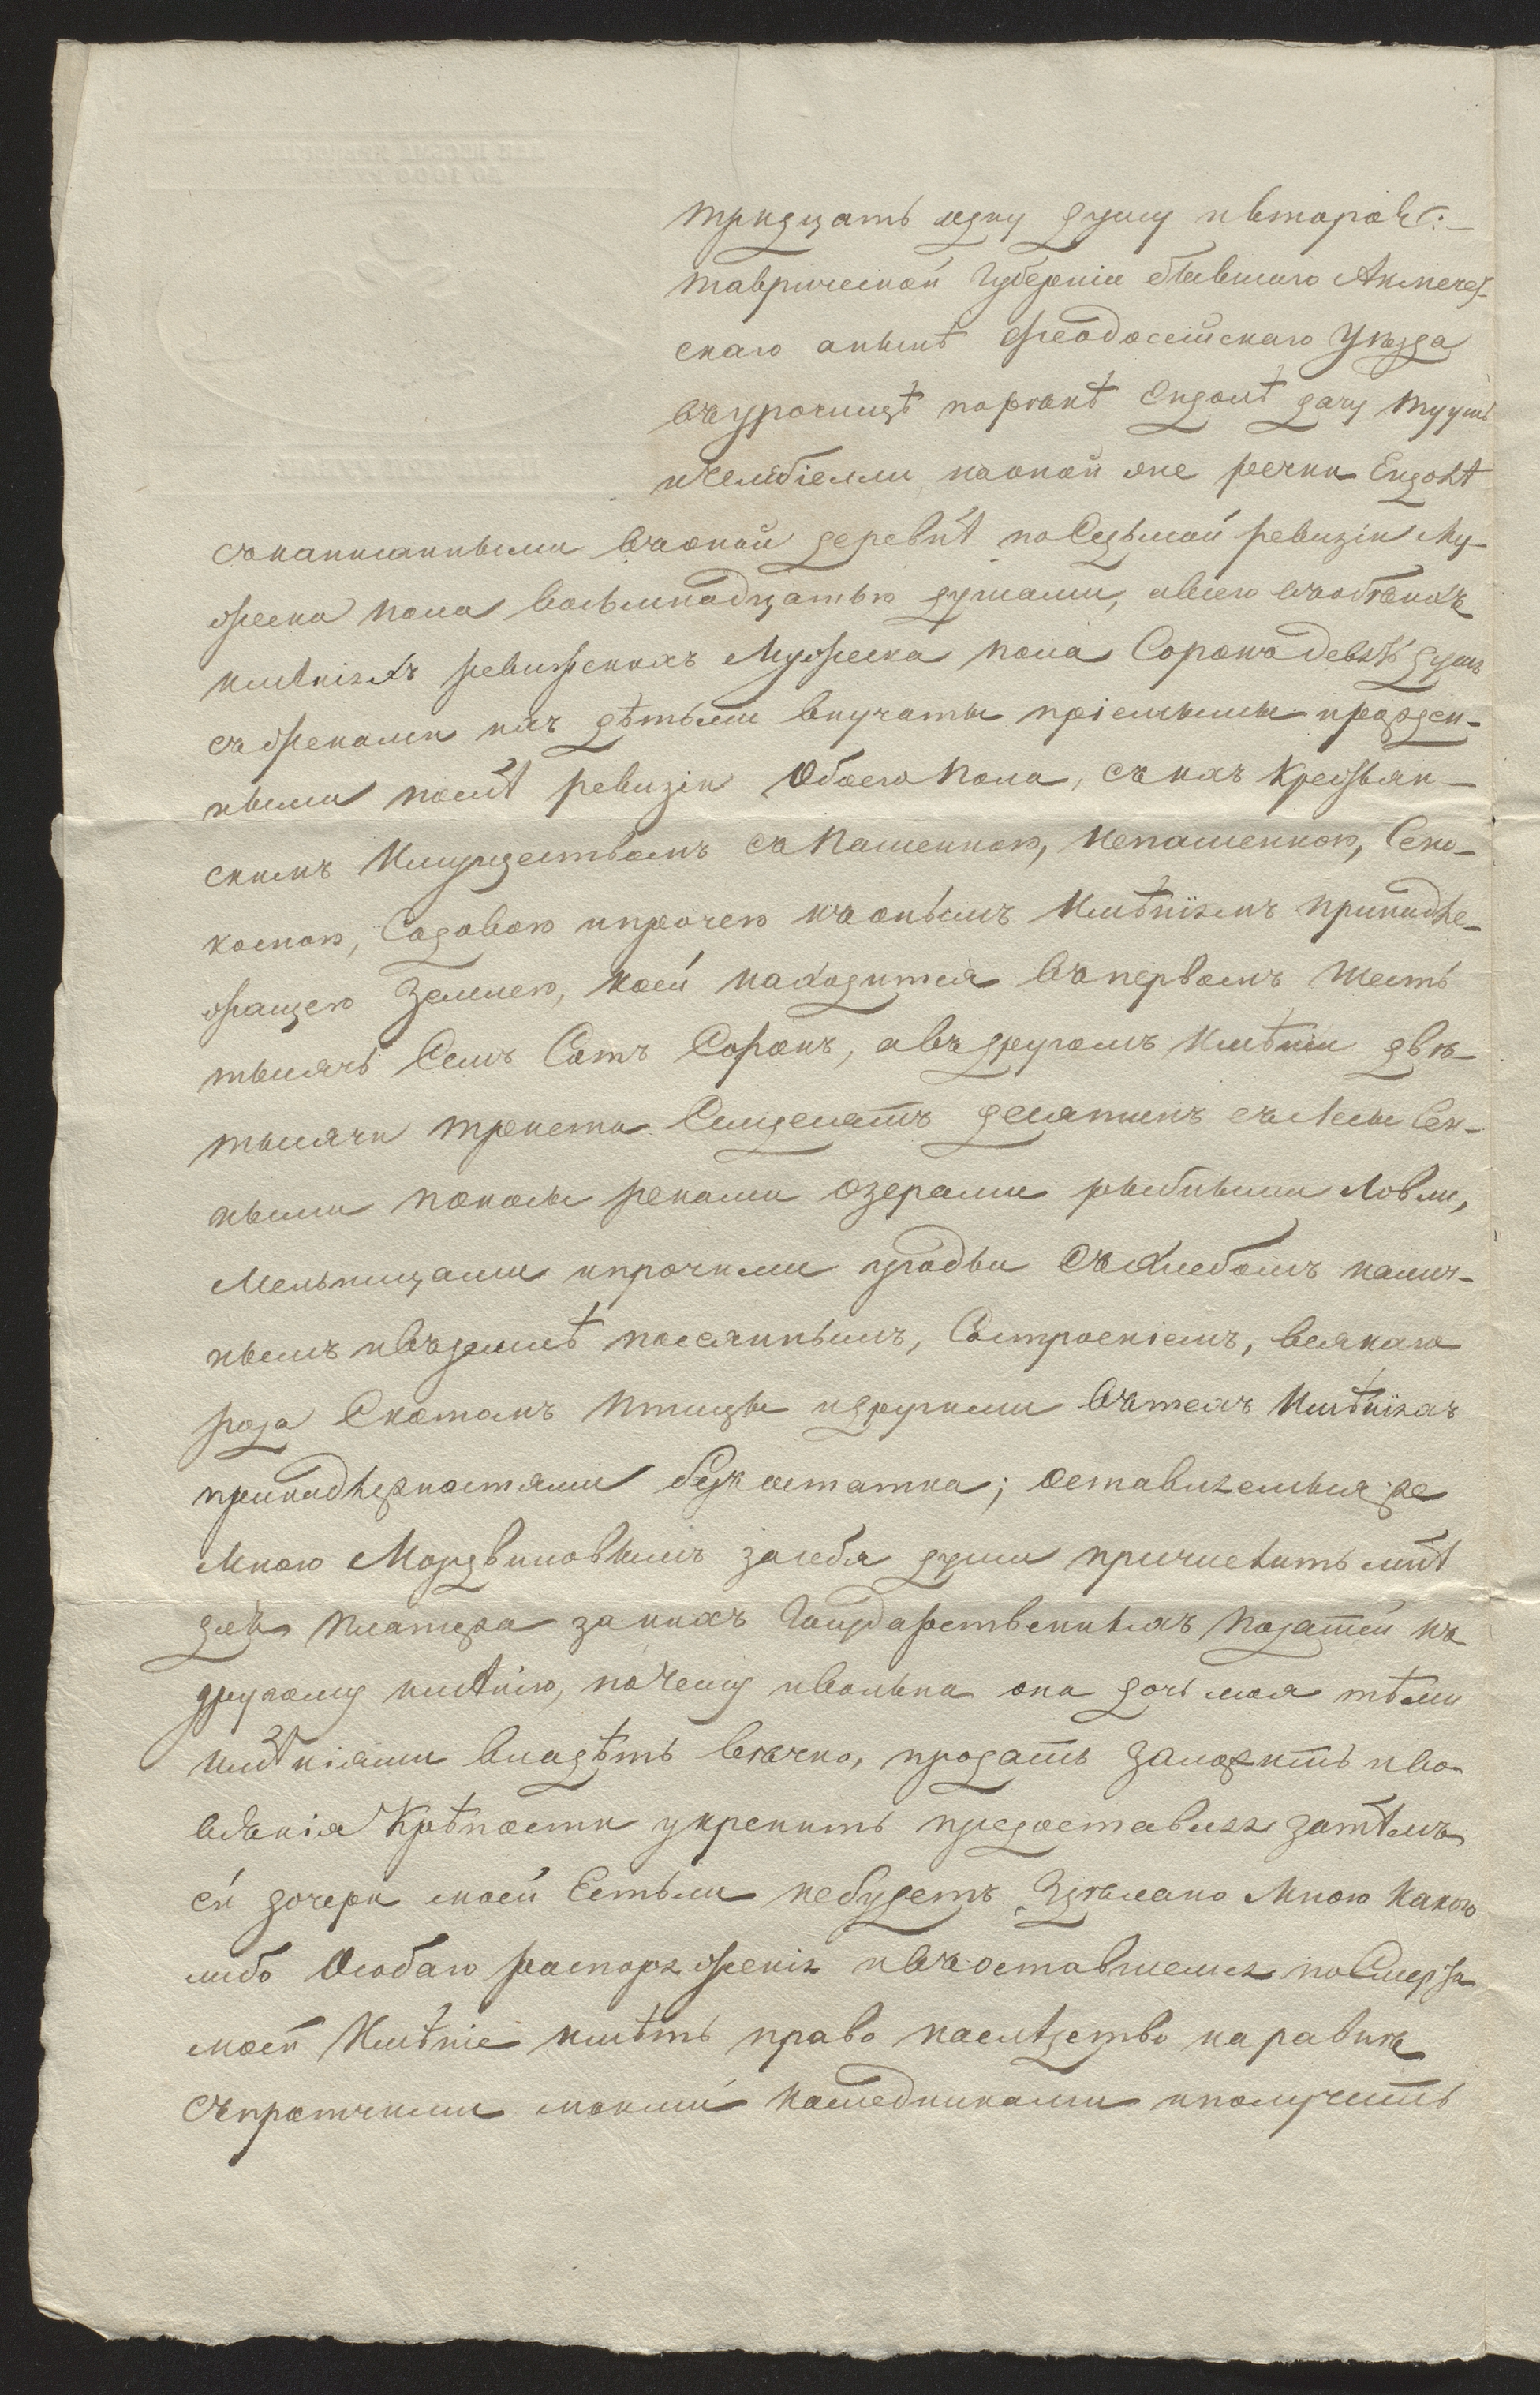 тридцать одну душу и второѣ:
таврической Губерніи бывшаго Акмечет-
скаго аныне Феодосійскаго Уѣзда
въурочищѣ порѣкѣ Ендолѣ дачу Мууть
ичелебіелли, наоной же речки Ендолѣ
сонаписанными въоной деревнѣ поСедьмой ревизіи Му-
жеска пола восьмнадцатью душами, авсего въобѣихъ
имѣніяхъ ревижскихъ Мужеска пола Сорокодевять душъ
съженами ихъ дѣтьми внучаты пріемыши ирожден-
ными послѣ ревизіи Обоего пола, съихъ Кресьян-
скимъ Имуществомъ съ Пашенною, Непашенною, Сено-
косною, Садовою ипрочею къонымъ Имѣніямъ принадле-
жащею Землею, коей находится въпервомъ Шесть
тысячь Семъ Сотъ Сорокъ, авъдругомъ Имѣніи двѣ-
тысячи триста Семдесятъ десятинъ сълесы Сен-
ными покосы реками озерами рыбными Ловли,
Мельницами ипрочими угодьи Съхлебомъ налич-
нымъ ивъземлѣ посеяннымъ, Состроеніемъ, всякаго
рода Скотомъ Птицы идругими вътехъ Имѣніяхъ
принадлежностями безъ остатка; оставляемыя же
Мною Мордвиновымъ засебя души причислить мнѣ
для платежа за нихъ Государственныхъ податей къ
другому имѣнію, почему ивольна она дочь моя тѣми
имѣніями владѣть вѣчно, продать заложить иво
всякія Крѣпости укрепить предоставляя затѣмъ
ей дочери моей Естьли небудетъ Здѣлано Мною какого
либо Особаго распоряженія ивъоставшемся поСмерти
моей Имѣніе имѣть право наслѣдство наравнѣ
съпротчими моими наследниками иполучить